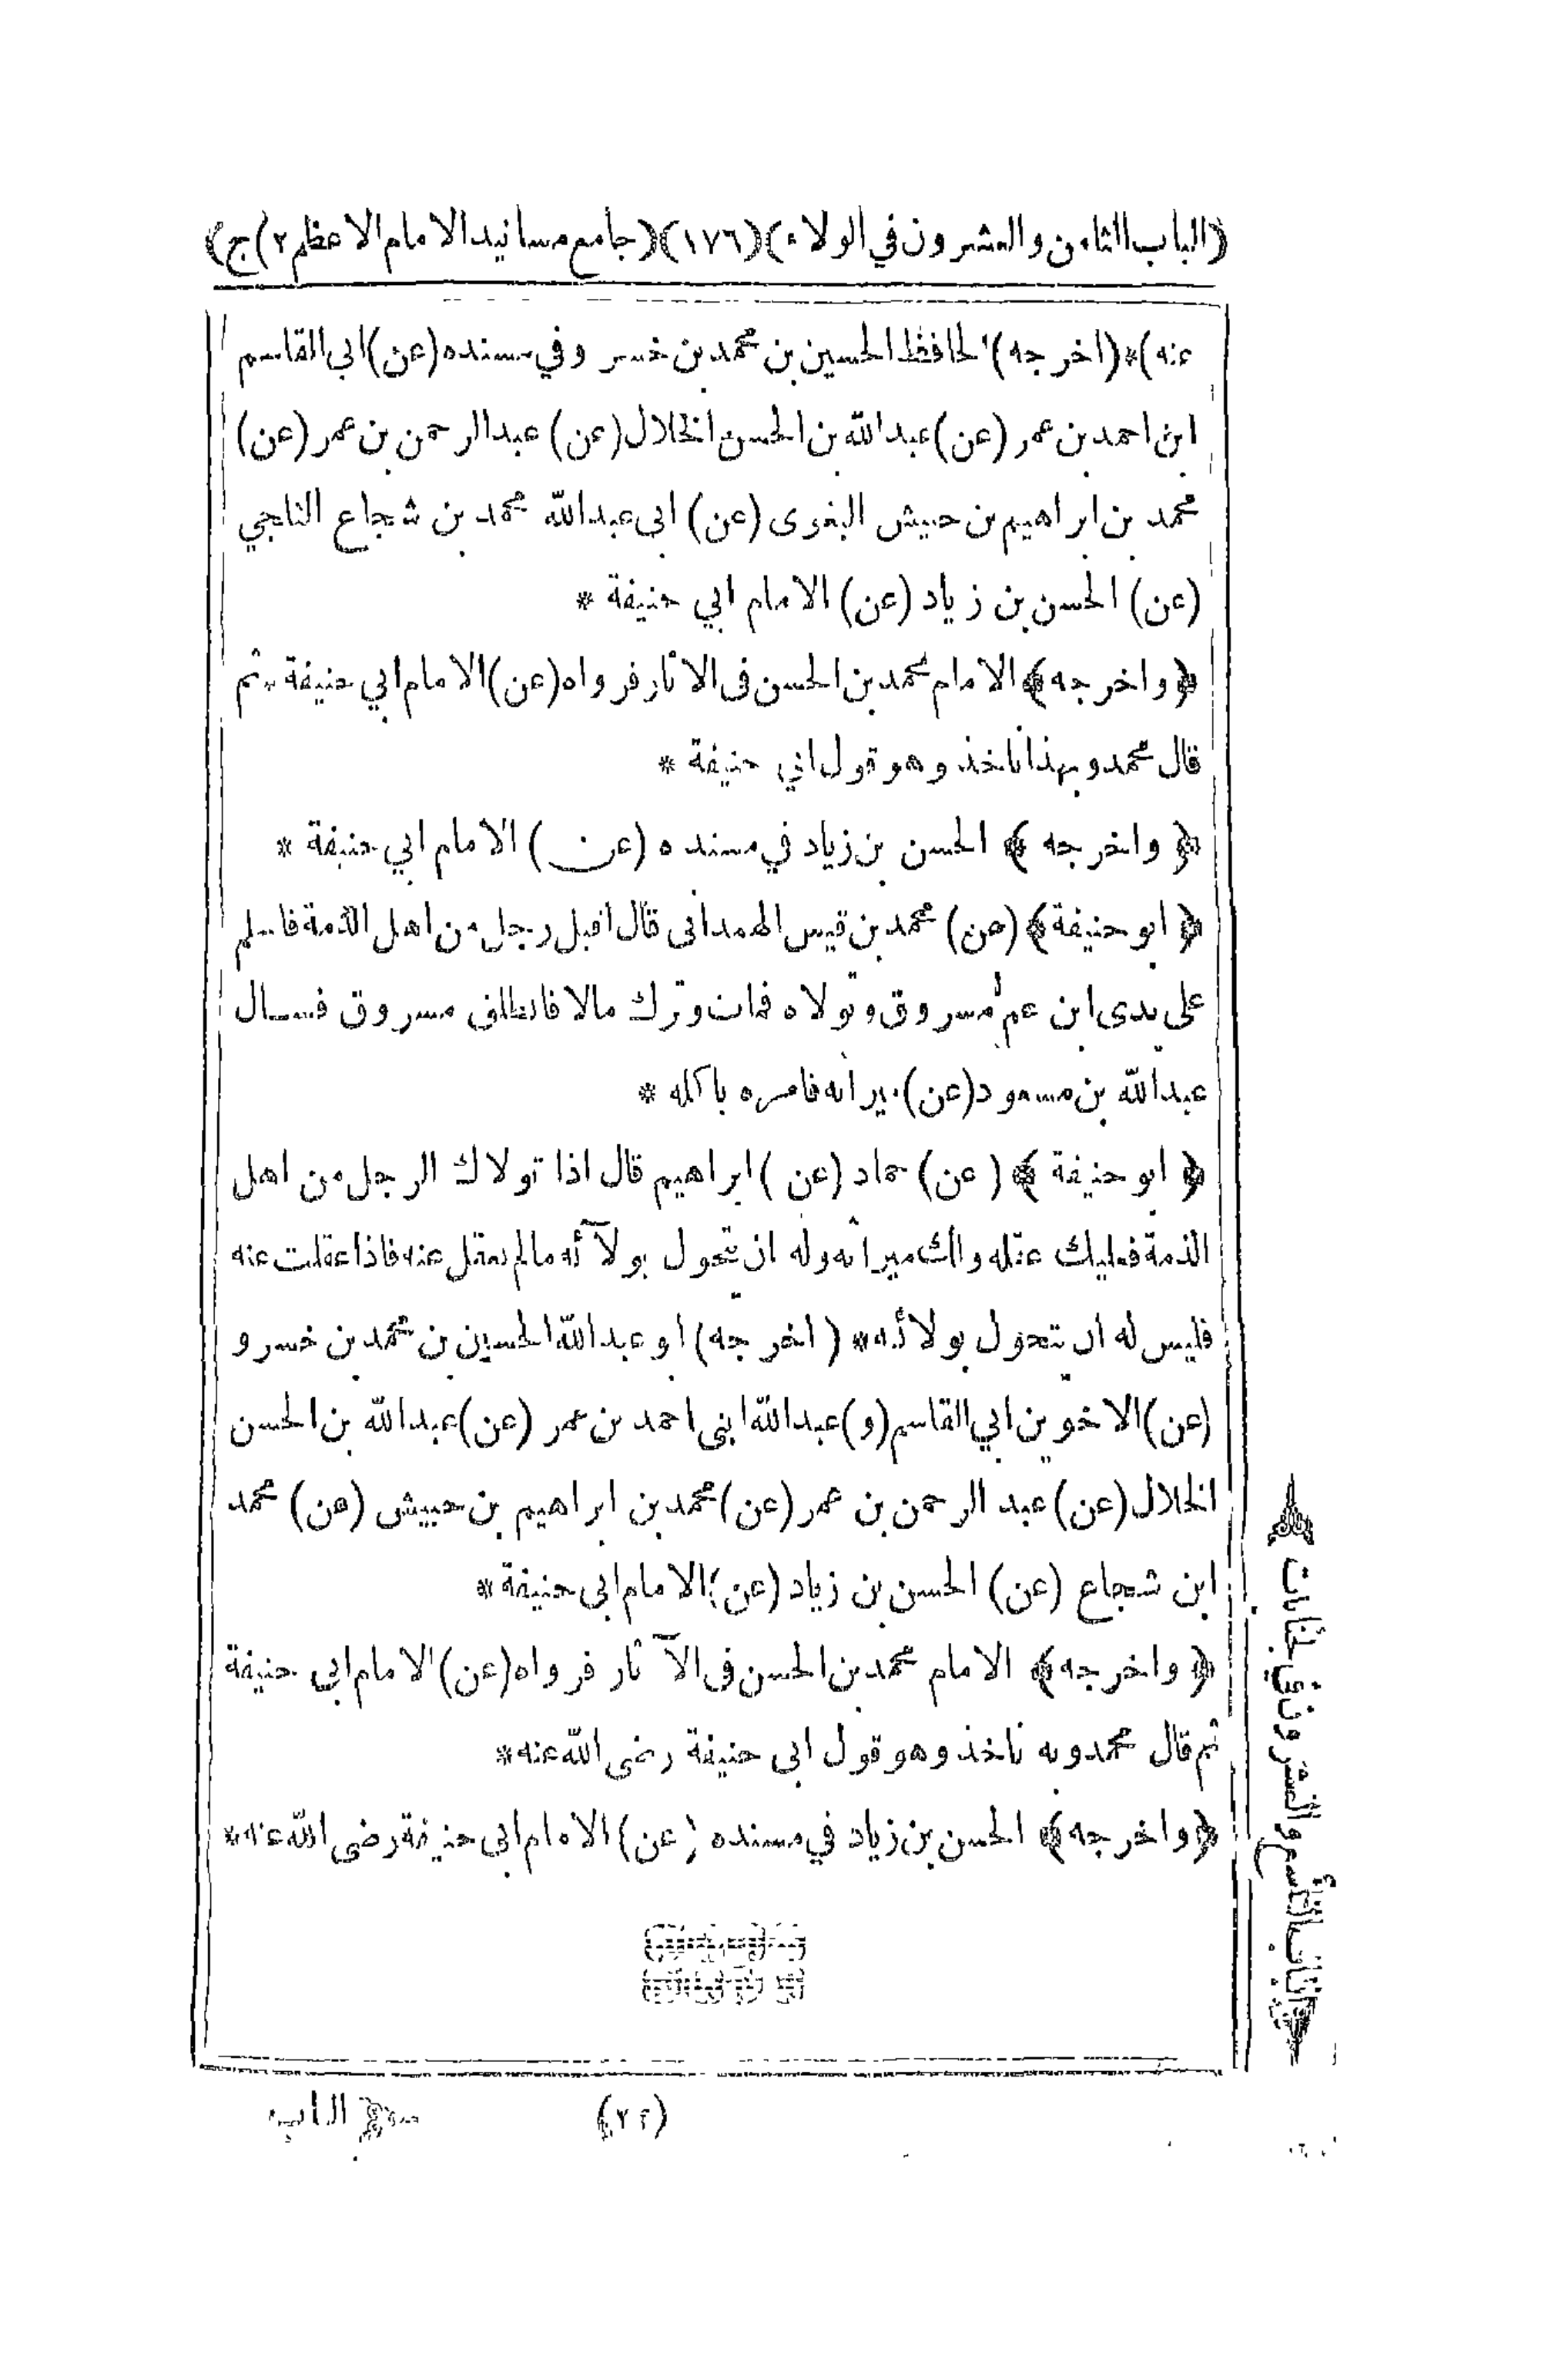 (الباب الثامن والعشرون في الولاء) (١٧٦) (جامع مسانيد الامام الاعظم ٢) ج)
عنه)*(اخرجه) الحافظ الحسين بن محمد بن خسرو في مسنده (عن) ابي القاسم
ابن احمد بن عمر (عن) عبد الله بن الحسن الخلال (عن) عبد الرحمن بن عمر (عن)
محمد بن ابراهيم بن حبيش البغوى (عن) ابى عبد الله محمد بن شجاع الثلجي
(عن) الحسن بن زياد (عن) الامام ابي حنيفة *
﴿واخرجه﴾ الامام محمد بن الحسن فى الاثار فرواه (عن) الامام ابي حنيفة * ثم
قال محمد وبهذا ناخذ وهو قول ابي حنيفة *
﴿واخرجه﴾ الحسن بن زياد في مسنده (عن) الامام ابي حنيفة *
﴿ابو حنيفة﴾ (عن) محمد بن قيس الهمدانى قال اقبل رجل من اهل الذمة فاسلم
على يدى ابن عم مسروق وتولاه فمات وترك مالا فانطلق مسروق فسال
عبد الله بن مسعود (عن) ميراثه فامره باكله *
﴿ابو حنيفة﴾ (عن) حماد (عن) ابراهيم قال اذا تولاك الرجل من اهل
الذمة فعليك عقله ولك ميراثه وله ان يتحول بولآئه مالم يعقل عنه فاذا عقلت عنه
فليس له ان يتحول بولائه * (اخرجه) ابو عبد الله الحسين بن محمد بن خسرو
(عن) الاخوين ابي القاسم (و) عبد الله ابنى احمد بن عمر (عن) عبد الله بن الحسن
الخلال (عن) عبد الرحمن بن عمر (عن) محمد بن ابراهيم بن حبيش (عن) محمد
ابن شجاع (عن) الحسن بن زياد (عن) الامام ابى حنيفة *
﴿واخرجه﴾ الامام محمد بن الحسن فى الآثار فرواه (عن) الامام ابى حنيفة
ثم قال محمد وبه ناخذ وهو قول ابى حنيفة رضى الله عنه *
﴿واخرجه﴾ الحسن بن زياد في مسنده (عن) الامام ابى حنيفة رضى الله عنه *
الباب التاسع والعشرون في الجنايات
(٢٢)
الباب